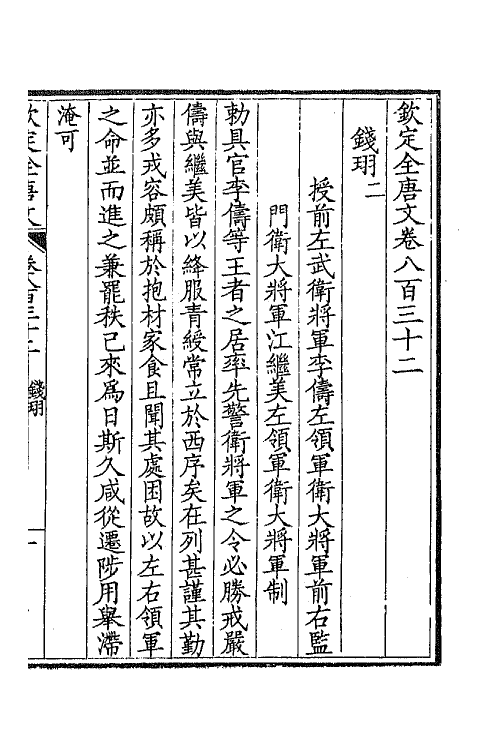 欽定全唐文卷八百三十二
錢珝二
授前左武衛將軍李儔左領軍衛大將軍前右監
門衛大將軍江繼美左領軍衛大將軍制
勅具官李儔等王者之居率先警衛將軍之令必勝戒嚴
儔與繼美皆以絳服青綬常立於西序矣在列甚謹其勤
亦多戎容頗稱於抱材家食且聞其處困故以左右領軍
之命並而進之兼罷秩已來爲日斯久咸從遷陟用舉滯
淹可